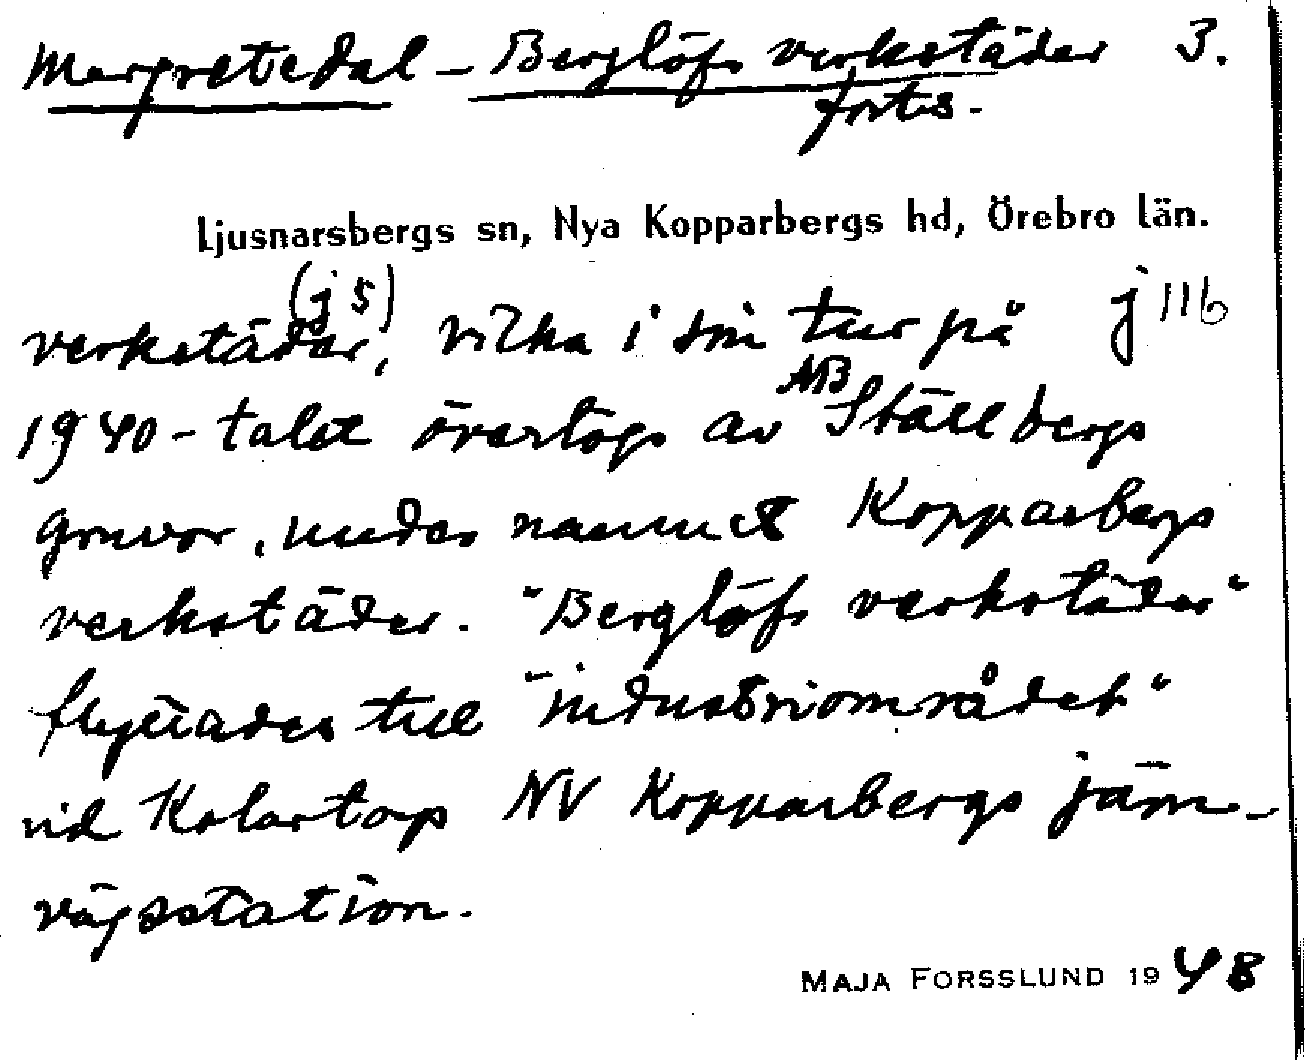 Margretedal - Berglöfs verkstäder 3.
forts.
Ljusnarsbergs sn, Nya Kopparbergs hd, Örebro län.
(j 5)
verkstäder, vilka i sin tur på j 11b
1940-talet övertogs av AB Ställbergs
gruvor, under namnet Kopparbergs
verkstäder. "Berglöfs verkstäder"
flyttades till "industriområdet"
vid Kolartorp NV Kopparbergs järn-
vägsstation.
MAJA FORSSLUND 1948